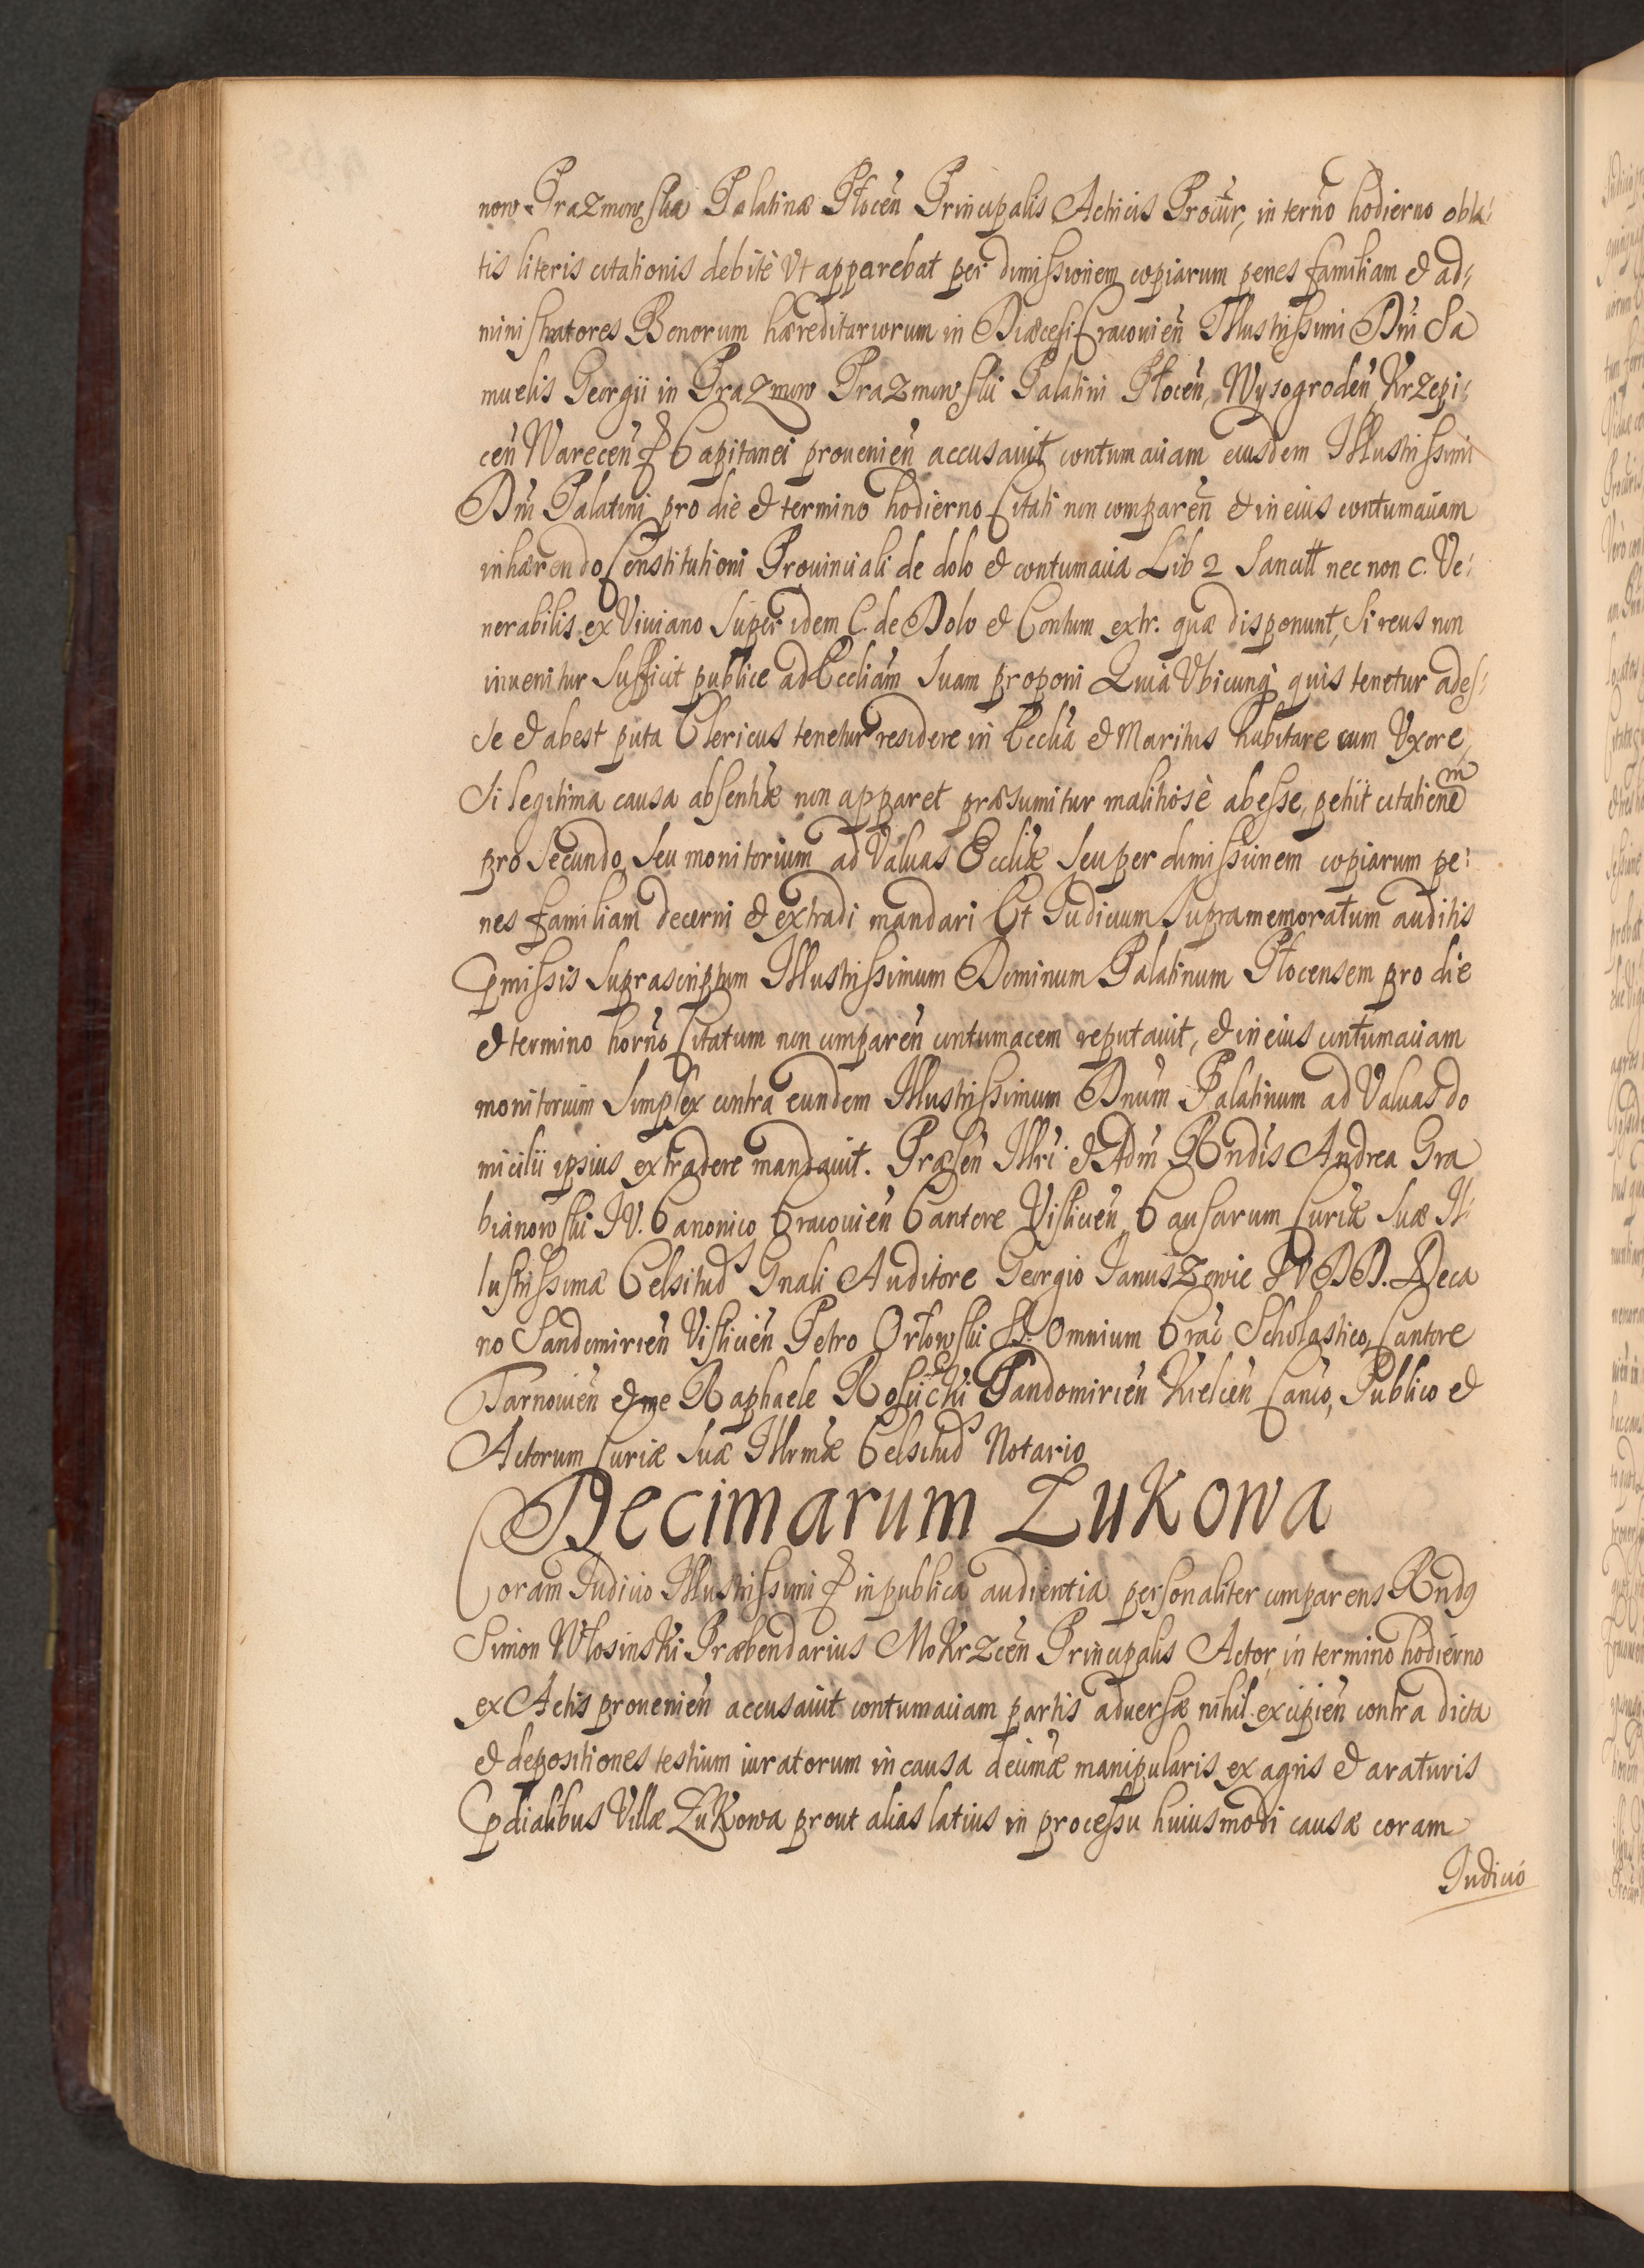 now Prazmowska Palatinæ Płocen̄ Principalis Actricis Procur, in terno hodierno obla:
tis literis citationis debitè Vt apparebat per dimissionem copiarum penes familiam & ad:
ministratores Bonorum hæreditariorum in Diæcesi Cracouien̄ Illustrissimi Dni Sa
muelis Georgii in Prazmow Prazmowski Palatini Płocen̄, Wysogroden̄ Krzepi:
cen̄ Warecen̄ & Capitanei prouenien̄ accusauit contumaciam eiusdem Illustrissimi
Dni Palatini pro die & termino hodierno Citati non comparen̄ & in eius contumaciam
inhærendo Constitutioni Prouinciali de dolo & contumacia Lib 2 Sancitt nec non C. Ve:
nerabilis ex Viuiano Super idem C. de Dolo & Contum extr. quæ disponunt, Si reus non
inuenitur Sufficit publice ad Eccliam Suam proponi Quia Vbicunq quis tenetur ades:
se & abest puta Clericus tenetur residere in Ecclia & Maritus habitare cum Vxore,
Si legitima causa absentiæ non apparet præsumitur malitiosè abesse, petiit citationem
pro Secundo, Seu monitorium ad Valuas Eccliæ Seu per dimissionem copiarum pe:
nes familiam decerni & extradi mandari Et Iudicium Supramemoratum auditis
pmissis Suprascriptum Illustrissimum Dominum Palatinum Płocensem pro die
& termino horno Citatum non comparen̄ contumacem reputauit, & in eius contumaciam
monitorium Simplex contra eundem Illustrissimum Dnum Palatinum ad Valuas do
micilii ipsius extradere mandauit. Præsen̄ Illri & Adm Rndis Andrea Gra
bianowski IV. Canonico Cracouien̄ Cantore Vislicien̄ Causarum Curiæ Suæ Il:
lustrissimæ Celsitud Gnali Auditore Georgio Januszowic IVDD. Deca
no Sandomirien̄ Vislicien̄ Petro Orłowski SS. Omnium Crac Scholastico, Cantore
Tarnouien̄ & me Raphaele Rosiicki Sandomirien̄ Kielcen̄ Canco, Publico &
Actorum Curiæ Suæ Illrmæ Celsitud Notario
Decimarum Zukowa
Coram Iudicio Illustrissimi & in publica audientia personaliter comparens Rndq
Simon Włosinski Præbendarius Mokrzcen̄ Principalis Actor, in termino hodierno
ex Actis prouenien̄ accusauit contumaciam partis aduersæ nihil excipien̄ contra dicta
& depositiones testium iuratorum in causa decimæ manipularis ex agris & araturis
pdialibus Villæ Zukowa prout alias latius in processu huiusmodi causæ coram
Iudicio